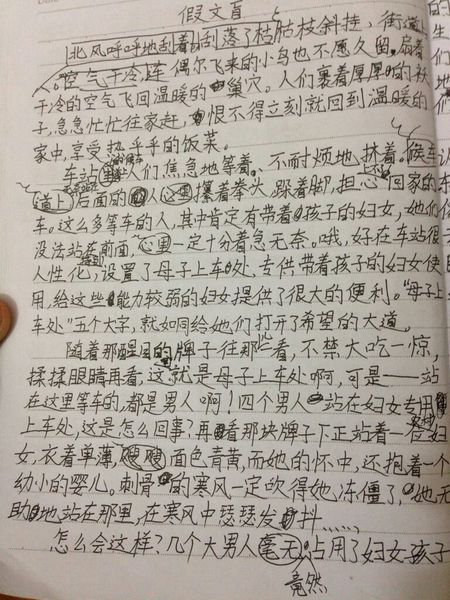 假文盲
北风呼呼地刮着,刮落了枯枯枝斜挂,街道上
。空气干冷,连偶尔飞来的小鸟也不愿久留,扇着
干冷的空气飞回温暖的巢穴。人们裹着厚厚的袄
子,急急忙忙往家赶,恨不得立刻就回到温暖的
家中,享受热乎乎的饭菜。
车站里人们焦急地等着、不耐烦地挤着。候车
道上后面的人攥着拳头,踩着脚,担心回家的
车。这么多等车的人,其中肯定有带着孩子的妇女,她们
没法站在前面,心里一定十分着急无奈。哦,好在车站很
人性化,设置了母子上车处,专供带着孩子的妇女使
用,给这些能力较弱的妇女提供了很大的便利。“母子上
车处”五个大字,就如同给她们打开了希望的大道。
随着那醒目的牌子往那看,不禁大吃一惊,
揉揉眼睛再看,这就是母子上车处啊,可是——站
在这里等车的,都是男人啊!四个男人站在妇女专用
上车处,这是怎么回事?再看那块牌子下正站着一位妇
女,衣着单薄,面色青黄,而她的怀中,还抱着一个
幼小的婴儿。刺骨的寒风一定吹得她冻僵了,她无
助地站在那里,在寒风中瑟瑟发抖……
怎么会这样?几个大男人毫无占用了妇女孩子
竟然